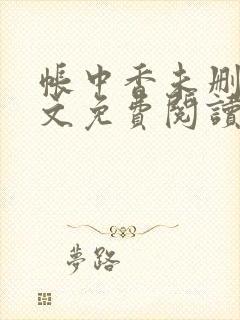 帳中香未刪
文免費閱讀
夢路